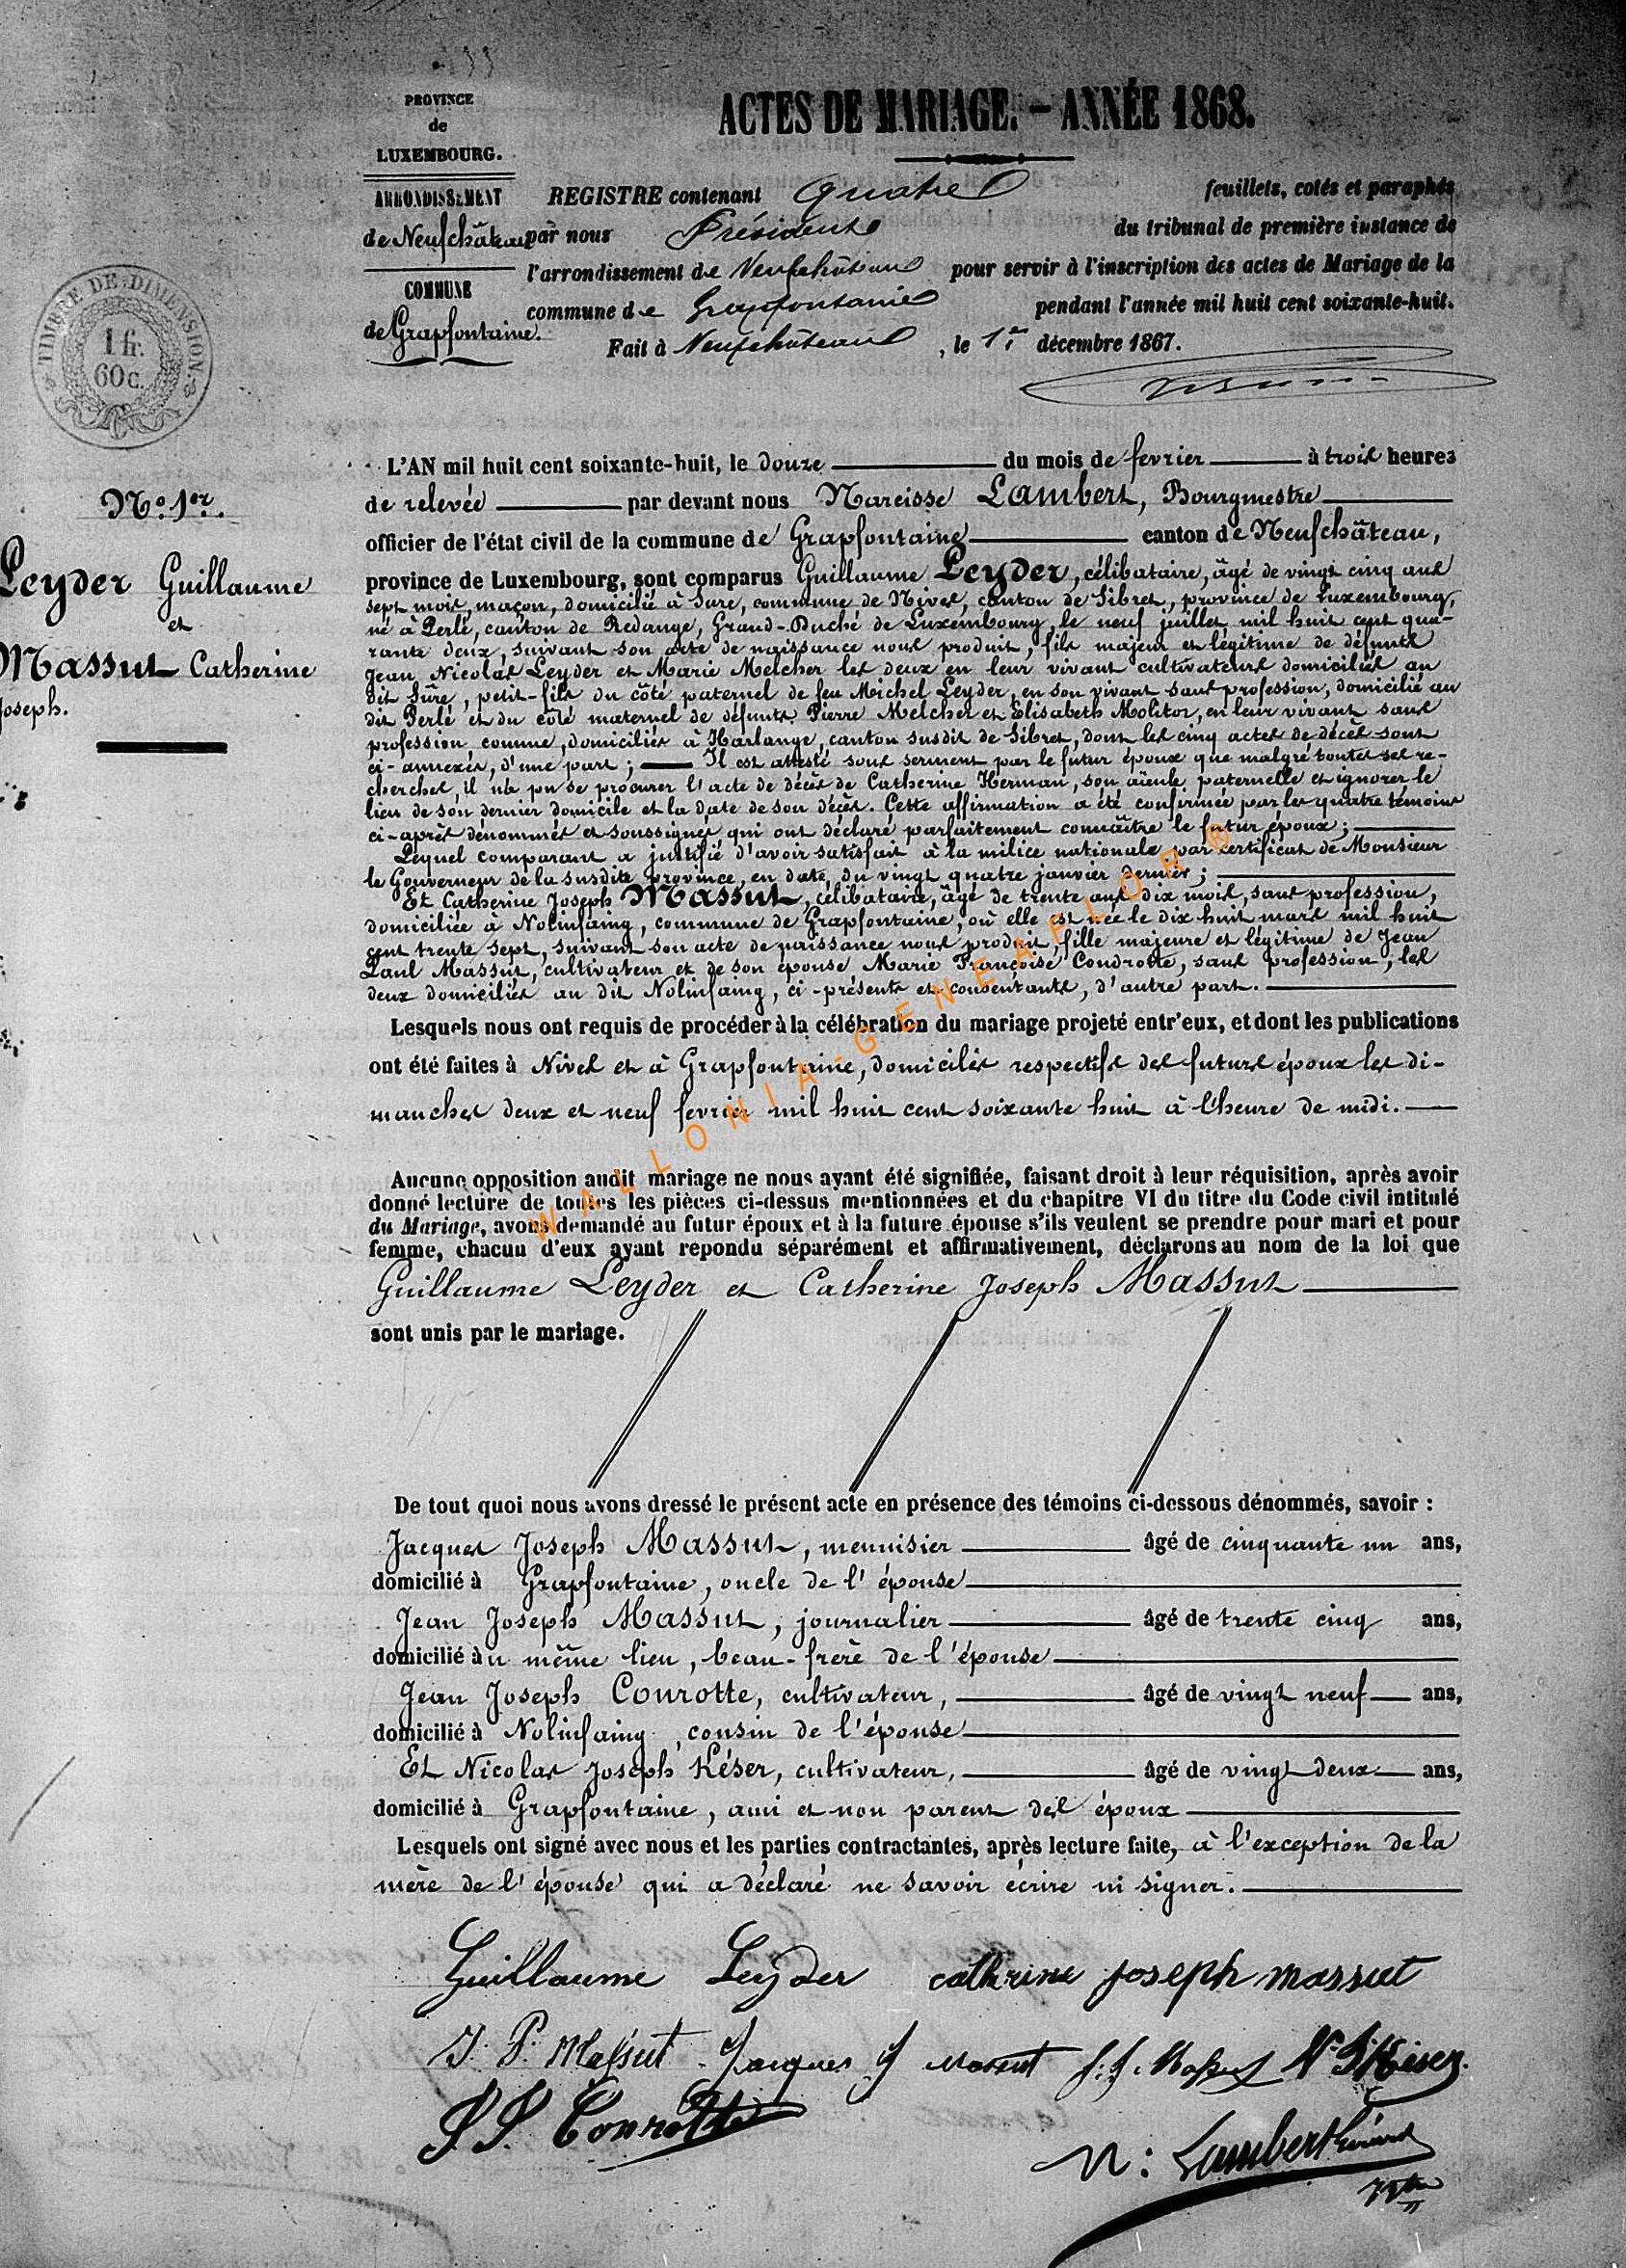 PROVINCE
de
LUXEMBOURG.
ARRONDISSEMENT
de Neufchâteau
COMMUNE
de Grapfontaine.
TIMBRE DE DIMENSION.
1 fr.
60 c.
ACTES DE MARIAGE. – ANNÉE 1868.
REGISTRE contenant quatre feuillets, cotés et paraphés
par nous Président du tribunal de première instance de
l'arrondissement de Neufchâteau pour servir à l'inscription des actes de Mariage de la
commune de Grapfontaine pendant l'année mil huit cent soixante-huit.
Fait à Neufchâteau, le 1er décembre 1867.
No. 1er.
Leyder Guillaume
et
Massut Catherine
Joseph.
L'AN mil huit cent soixante-huit, le douze du mois de fevrier à trois heures
de relevée par devant nous Narcisse Lambert, Bourgmestre
officier de l'état civil de la commune de Grapfontaine canton de Neufchâteau,
province de Luxembourg, sont comparus Guillaume Leyder, célibataire, âgé de vingt cinq ans
sept mois, maçon, domicilié à Sure, commune de Nives, canton de Sibret, province de Luxembourg,
né à Perlé, canton de Redange, Grand-Duché de Luxembourg, le neuf juillet mil huit cent qua-
rante deux, suivant son acte de naissance nous produit, fils majeur et légitime de défunts
Jean Nicolas Leyder et Marie Melcher les deux en leur vivant cultivateurs domiciliés au
dit Sûre, petit-fils du côté paternel de feu Michel Leyder, en son vivant sans profession, domicilié au
dit Perlé et du côté maternel de défunts Pierre Melcher et Elisabeth Molitor, en leur vivant sans
profession connue, domiciliés à Harlange, canton susdit de Sibret, dont les cinq actes de décès sont
ci-annexés, d'une part; Il est attesté sous serment par le futur époux que malgré toutes ses re-
cherches, il n'a pu se procurer l'acte de décès de Catherine Herman, son aïeule paternelle et ignorer le
lieu de son dernier domicile et la date de son décès. Cette affirmation a été confirmée par les quatre témoins
ci-après dénommés et soussignés qui ont déclaré parfaitement connaître le futur époux;
Lequel comparant a justifié d'avoir satisfait à la milice nationale par certificat de Monsieur
le Gouverneur de la susdite province, en date du vingt quatre janvier dernier;
Et Catherine Joseph Massut, célibataire, âgé de trente ans dix mois, sans profession,
domiciliée à Nolinfaing, commune de Grapfontaine, où elle est née le dix huit mars mil huit
cent trente sept, suivant son acte de naissance nous produit, fille majeure et légitime de Jean
Paul Massut, cultivateur et de son épouse Marie Françoise Condrotte, sans profession, les
deux domiciliés au dit Nolinfaing, ci-présents et consentants, d'autre part.
Lesquels nous ont requis de procéder à la célébration du mariage projeté entr'eux, et dont les publications
ont été faites à Nives et à Grapfontaine, domiciles respectifs des futurs époux les di-
manches deux et neuf fevrier mil huit cent soixante huit à l'heure de midi.
WALLONIA-GENEAFLOR®
Aucune opposition audit mariage ne nous ayant été signifiée, faisant droit à leur réquisition, après avoir
donné lecture de toutes les pièces ci-dessus mentionnées et du chapitre VI du titre du Code civil intitulé
du Mariage, avons demandé au futur époux et à la future épouse s'ils veulent se prendre pour mari et pour
femme, chacun d'eux ayant repondu séparément et affirmativement, déclarons au nom de la loi que
Guillaume Leyder et Catherine Joseph Massut
sont unis par le mariage.
De tout quoi nous avons dressé le présent acte en présence des témoins ci-dessous dénommés, savoir :
Jacques Joseph Massut, menuisier âgé de cinquante un ans,
domicilié à Grapfontaine, oncle de l'épouse
Jean Joseph Massut, journalier âgé de trente cinq ans,
domicilié àu même lieu, beau-frère de l'épouse
Jean Joseph Courotte, cultivateur, âgé de vingt neuf ans,
domicilié à Nolinfaing, cousin de l'épouse
Et Nicolas Joseph Késer, cultivateur, âgé de vingt deux ans,
domicilié à Grapfontaine, ami et non parent des époux
Lesquels ont signé avec nous et les parties contractantes, après lecture faite, à l'exception de la
mère de l'épouse qui a déclaré ne savoir écrire ni signer.
Guillaume Leyder cathrine joseph massut
J. P. Massut Jacques J Massut J. J. Massut N. J. Késer.
J. J. Conrotte
N: Lambert